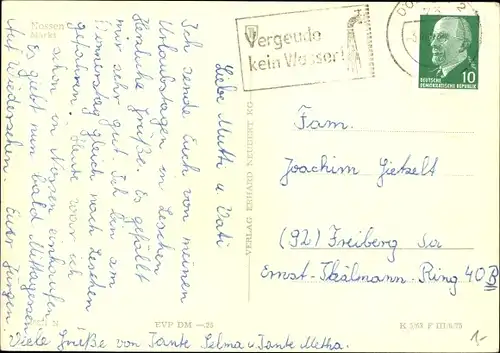 Nossen
Markt
Vergeude
kein Wasser!
DEUTSCHE
DEMOKRATISCHE REPUBLIK
10
Liebe Mutti u Vati
Ich sende Euch von meinen
Urlaubstagen in Leschen
Herzliche Grüße. Es gefällt
mir sehr gut. Ich bin am
Donnerstag gleich nach Leschen
gefahren. Heute war ich
schon in Nossen einkaufen.
Es giebt nun bald Mittagessen
Auf Wiedersehen. Euer Jürgen
Viele Grüße von Tante Selma u Tante Metha.
VERLAG ERHARD NEUBERT KG
Fam.
Joachim Gietzelt
(92) Freiberg Sa
Ernst-Thälmann-Ring 40B
EVP DM —.25
1-